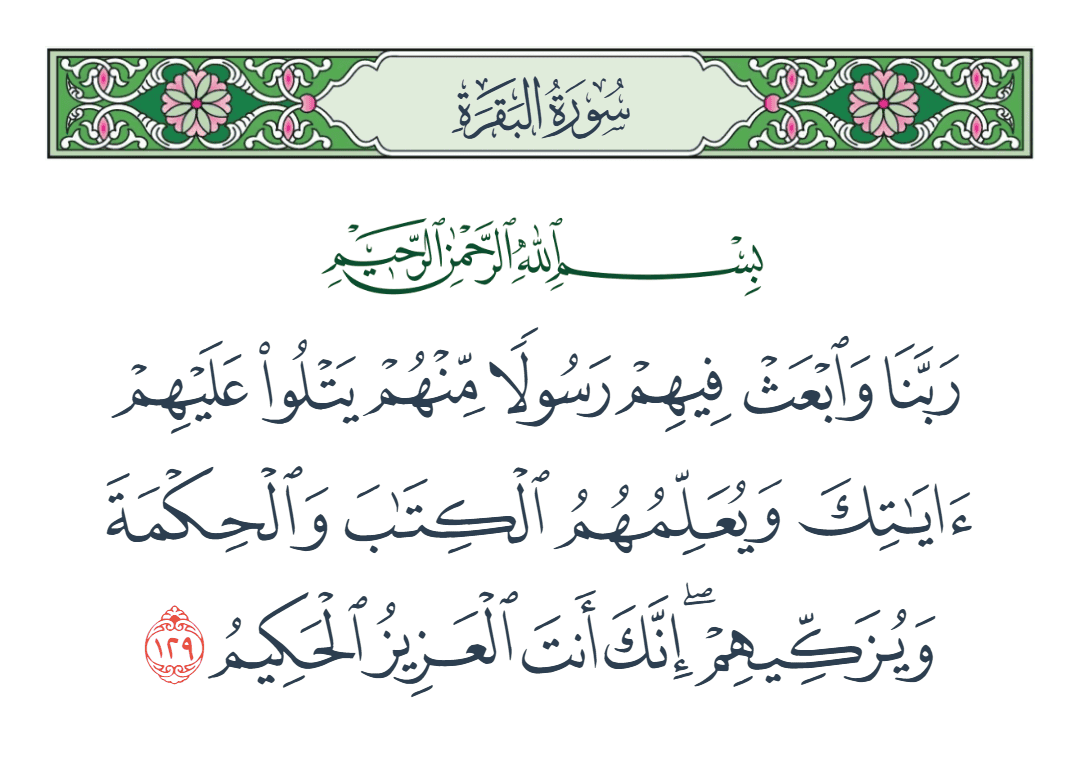 سُورَةُ البَقَرَةِ
بِسْمِ ٱللَّهِ ٱلرَّحْمَٰنِ ٱلرَّحِيمِ
رَبَّنَا وَٱبْعَثْ فِيهِمْ رَسُولًا مِّنْهُمْ يَتْلُوا۟ عَلَيْهِمْ
ءَايَٰتِكَ وَيُعَلِّمُهُمُ ٱلْكِتَٰبَ وَٱلْحِكْمَةَ
وَيُزَكِّيهِمْ ۖ إِنَّكَ أَنتَ ٱلْعَزِيزُ ٱلْحَكِيمُ ١٢٩